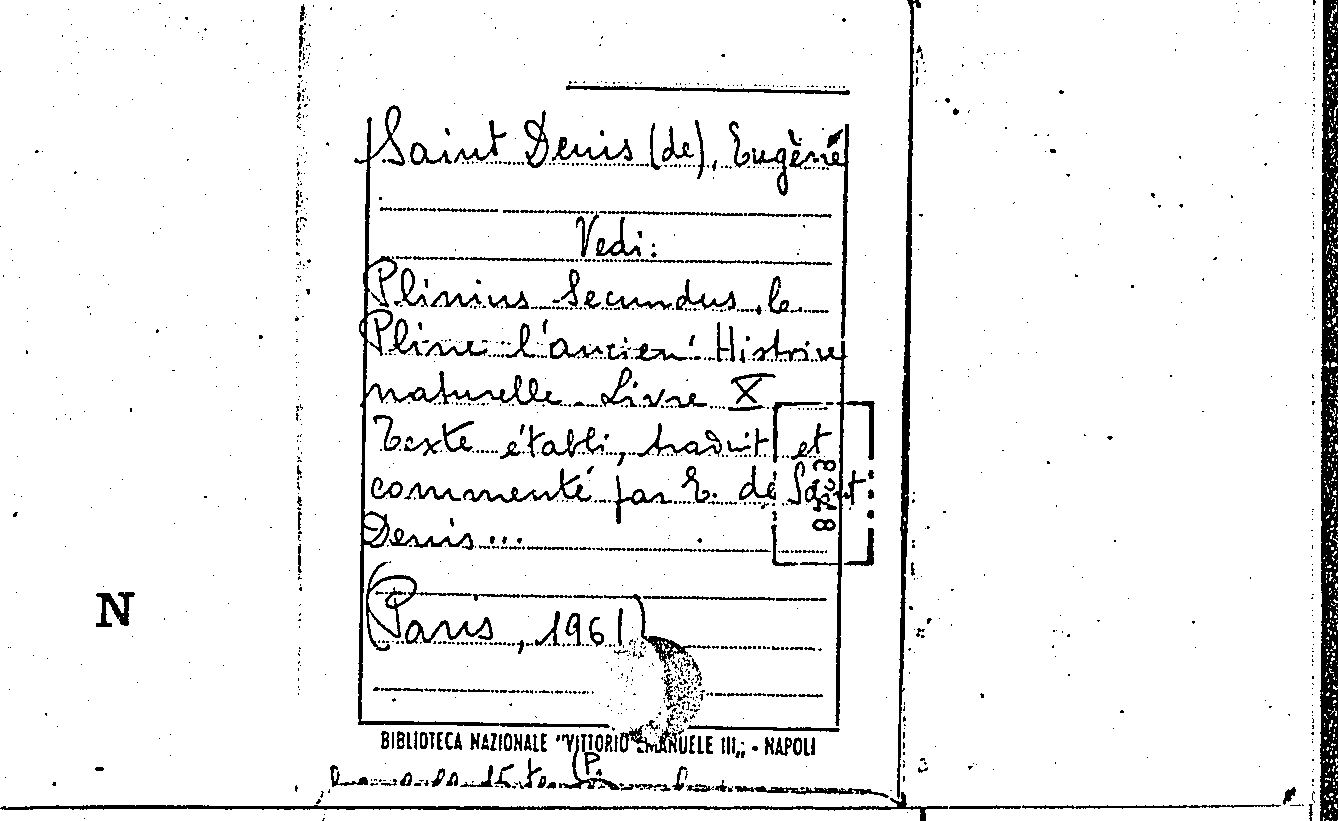 Saint Denis (de), Eugène
Vedi:
Plinius Secundus, C.
Pline l'ancien: Histoire
naturelle. Livre X
Texte établi, traduit et
commenté par E. de Saint
Denis...
(Paris, 1961)
N
BIBLIOTECA NAZIONALE "VITTORIO EMANUELE III" - NAPOLI
(P.